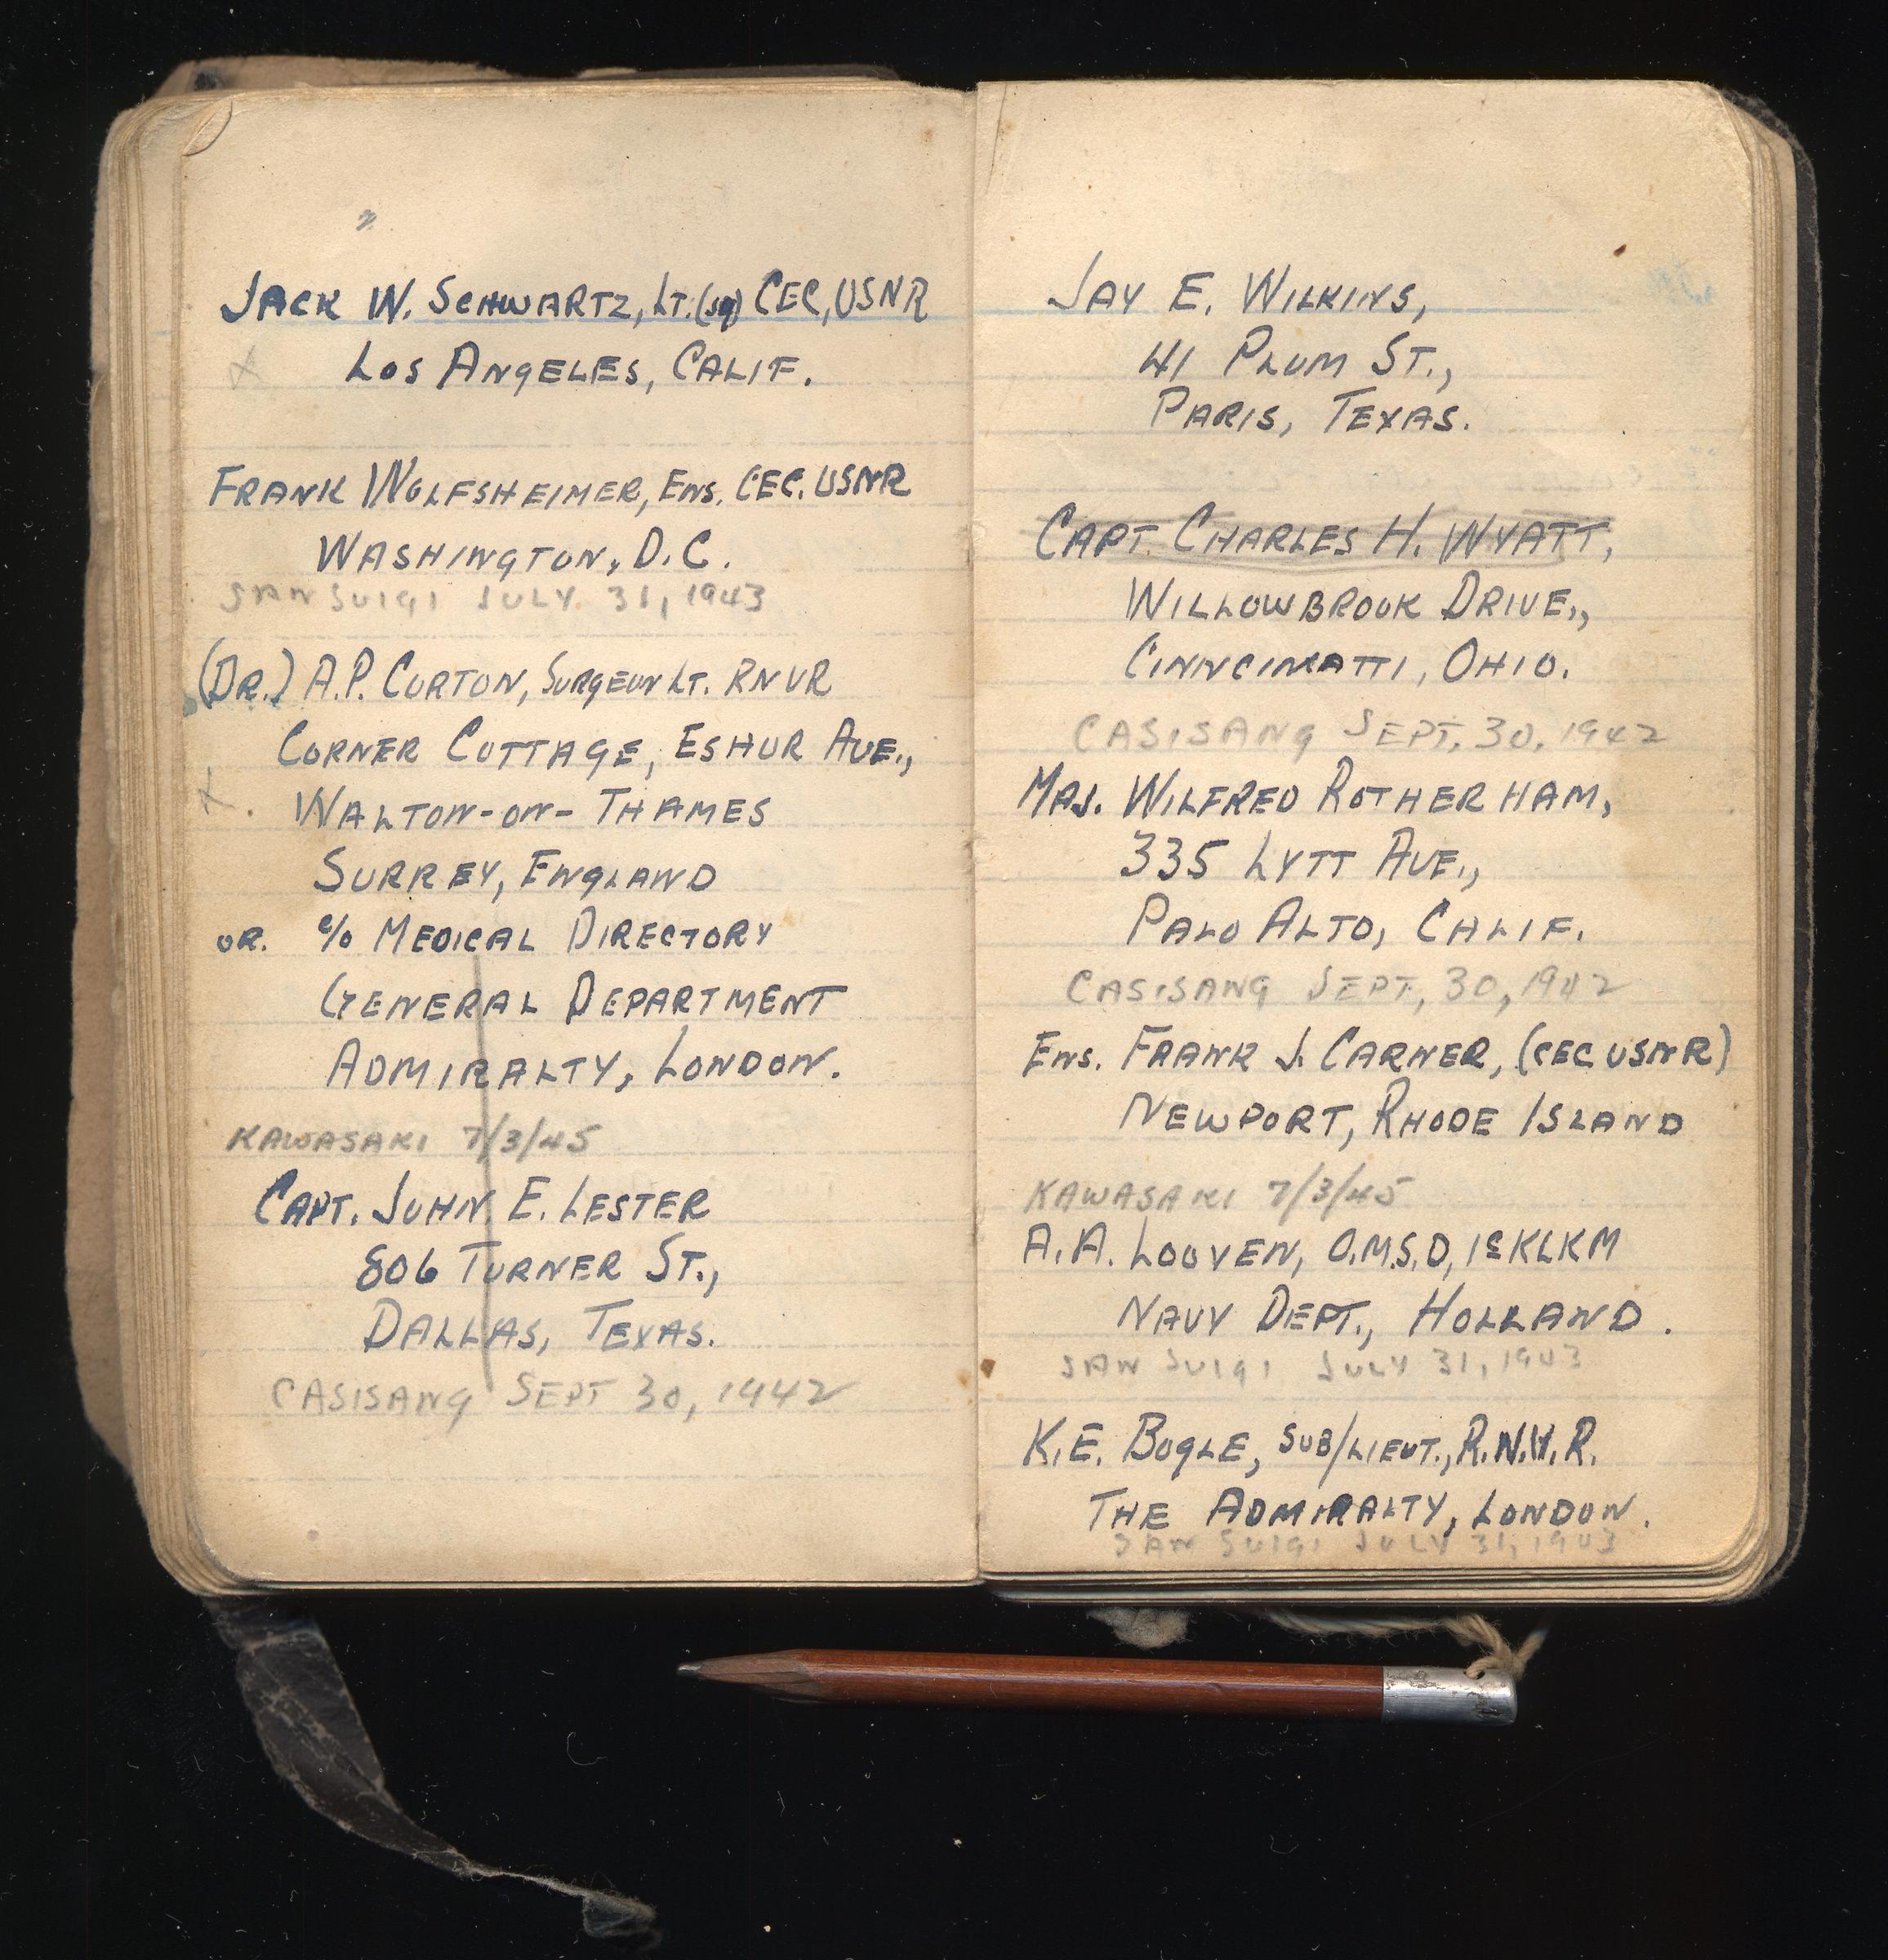 JACK W. SCHWARTZ, LT.(JG) CEC, USNR
LOS ANGELES, CALIF.
FRANK WOLFSHEIMER, ENS. CEC. USNR
WASHINGTON, D.C.
SAN SUIGI JULY 31, 1943
(DR.) A.P. CURTON, SURGEON LT. RNVR
CORNER COTTAGE, ESHUR AVE.,
WALTON-ON-THAMES
SURREY, ENGLAND
OR. c/o MEDICAL DIRECTORY
GENERAL DEPARTMENT
ADMIRALTY, LONDON.
KAWASAKI 7/3/45
CAPT. JOHN E. LESTER
806 TURNER ST.,
DALLAS, TEXAS.
CASISANG SEPT 30, 1942
JAY E. WILKINS,
41 PLUM ST.,
PARIS, TEXAS.
CAPT. CHARLES H. WYATT,
WILLOWBROOK DRIVE.,
CINNCINATTI, OHIO.
CASISANG SEPT. 30, 1942
MRS. WILFRED ROTHERHAM,
335 LYTT AVE.,
PALO ALTO, CALIF.
CASISANG SEPT, 30, 1942
ENS. FRANK J. CARNER, (CEC USNR)
NEWPORT, RHODE ISLAND
KAWASAKI 7/3/45
A.A. LOOVEN, O.M.S.D, 1e KLKM
NAVY DEPT., HOLLAND.
SAN SUIGI JULY 31, 1943
K.E. BOGLE, SUB/LIEUT., R.N.V.R.
THE ADMIRALTY, LONDON.
SAN SUIGI JULY 31, 1943